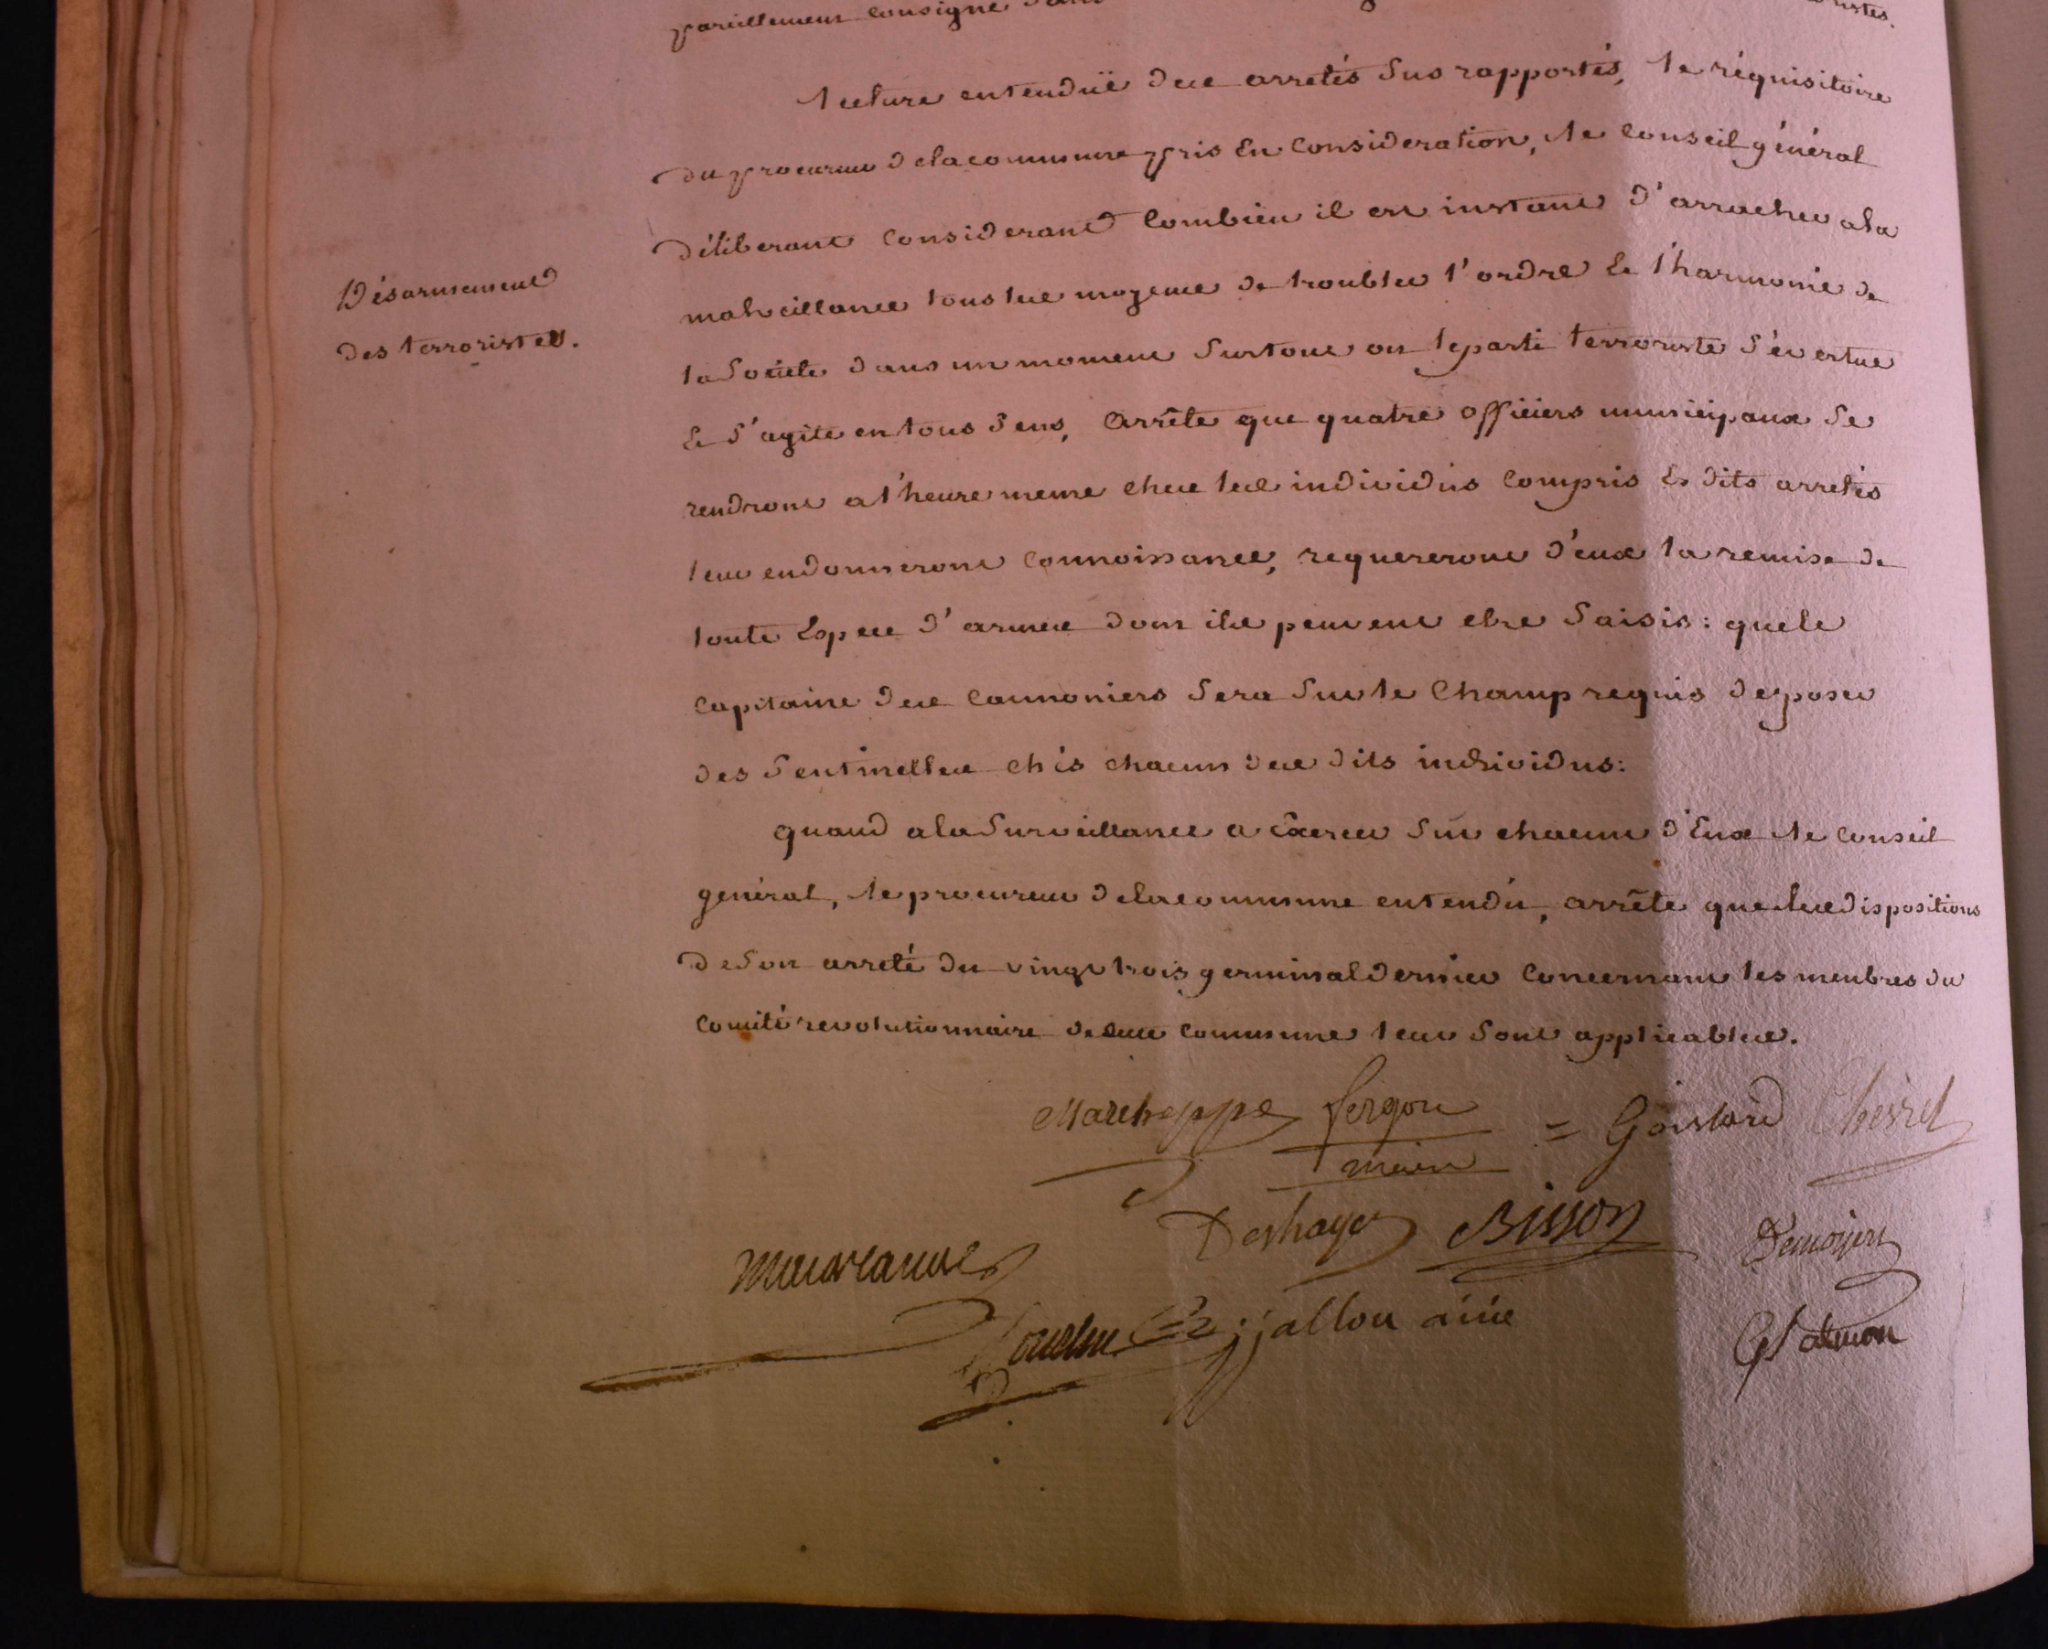 pareillement consigné dans
lecture entenduë des arretés sus rapportés, le réquisitoire
du procureur delacommune pris En Consideration, le Conseil général
déliberant Considerant Combien il est instant d'arracher ala
malveillance tous les moyens de troubler l'ordre & l'harmonie de
Désarmement
des terroristes.
la Société dans un moment Surtout ou leparti terroriste s'évertue
& s'agite en tous Sens, Arrête que quatre officiers municipaux Se
rendront a l'heure meme chez les individus Compris Es dits arretés
leur endonneront Connoissance, requereront d'eux la remise de
toute Espece d'armes dont ils peuvent etre Saisis: quele
Capitaine des Cannoniers Sera Sur le Champ requis deposer
des Sentinelles chés chacun des dits individus:
quand ala Surveillance a Exercer Sur chacun d'Eux le Conseil
général, le procureur delacommune entendu, arrête que les dispositions
deson arreté du vingt trois germinal dernier Concernant les menbres du
Comité revolutionnaire de cette Commune leur Sont applicables.
Marcheppe fergon = Goislard Chesnel
maire
Deshayes Bisson
jallou ainé
GSalmon